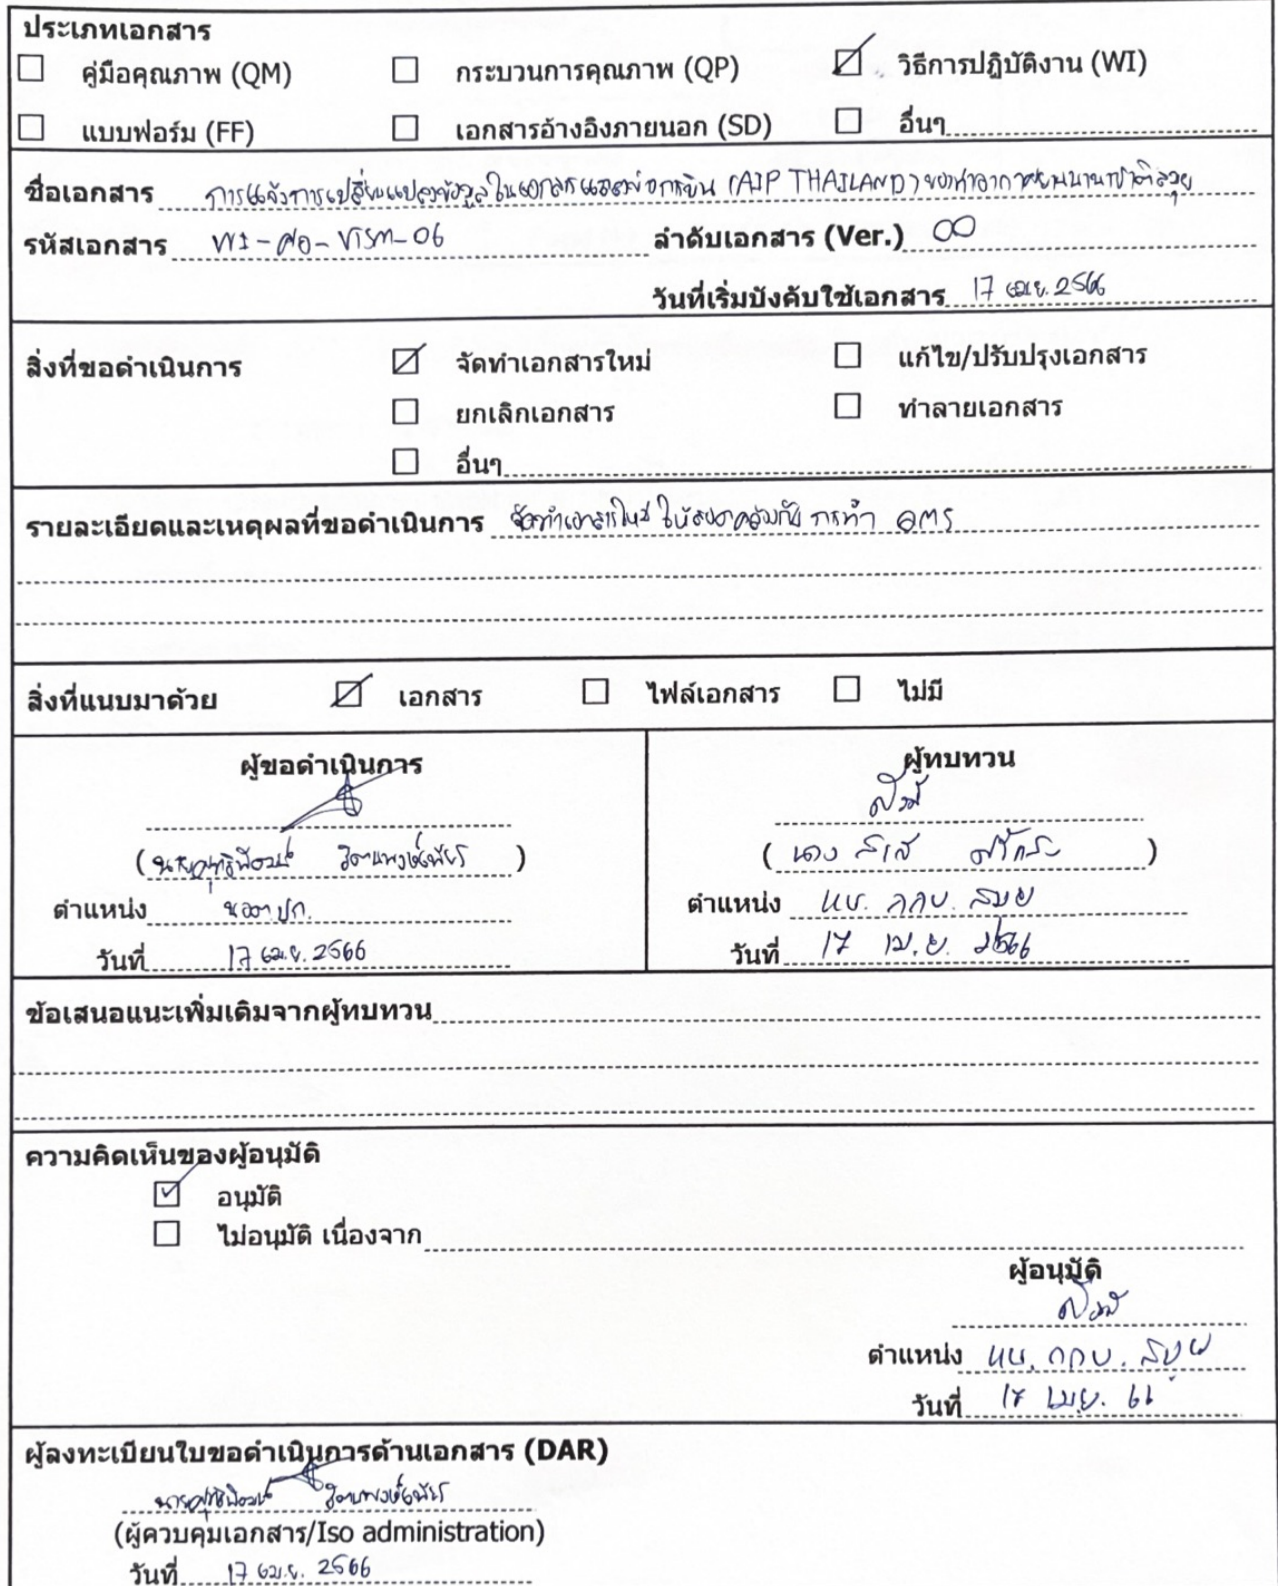 ประเภทเอกสาร
คู่มือคุณภาพ (QM) กระบวนการคุณภาพ (QP) วิธีการปฏิบัติงาน (WI)
แบบฟอร์ม (FF) เอกสารอ้างอิงภายนอก (SD) อื่นๆ
ชื่อเอกสาร การแจ้งการเปลี่ยนแปลงข้อมูลในเอกสารแถลงข่าวการบิน (AIP THAILAND) ของท่าอากาศยานนานาชาติสมุย
รหัสเอกสาร WI-ศอ-VTSM-06 ลำดับเอกสาร (Ver.) 00
วันที่เริ่มบังคับใช้เอกสาร 17 เม.ย. 2566
สิ่งที่ขอดำเนินการ จัดทำเอกสารใหม่ แก้ไข/ปรับปรุงเอกสาร
ยกเลิกเอกสาร ทำลายเอกสาร
อื่นๆ
รายละเอียดและเหตุผลที่ขอดำเนินการ จัดทำเอกสารใหม่ ให้สอดคล้องกับ การทำ QMS
สิ่งที่แนบมาด้วย เอกสาร ไฟล์เอกสาร ไม่มี
ผู้ขอดำเนินการ ผู้ทบทวน
( ) ( นาง )
ตำแหน่ง ตำแหน่ง
วันที่ 17 เม.ย. 2566 วันที่ 17 เม.ย. 2566
ข้อเสนอแนะเพิ่มเติมจากผู้ทบทวน
ความคิดเห็นของผู้อนุมัติ
อนุมัติ
ไม่อนุมัติ เนื่องจาก
ผู้อนุมัติ
ตำแหน่ง
วันที่ 17 เม.ย. 66
ผู้ลงทะเบียนใบขอดำเนินการด้านเอกสาร (DAR)
(ผู้ควบคุมเอกสาร/Iso administration)
วันที่ 17 เม.ย. 2566